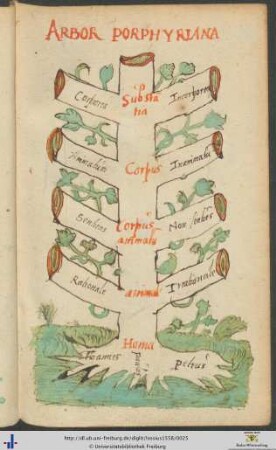 ARBOR PORPHYRIANA
Corporea
Substan
tia
Incorporea
Animatum
Corpus
Inanimatum
Sentiens
Corpus
animatu
Non sentiens
Rationale
animal
Irrationale
Homo
Ioannes
Petrus
http://dl.ub.uni-freiburg.de/diglit/
© Universitätsbibliothek Freiburg